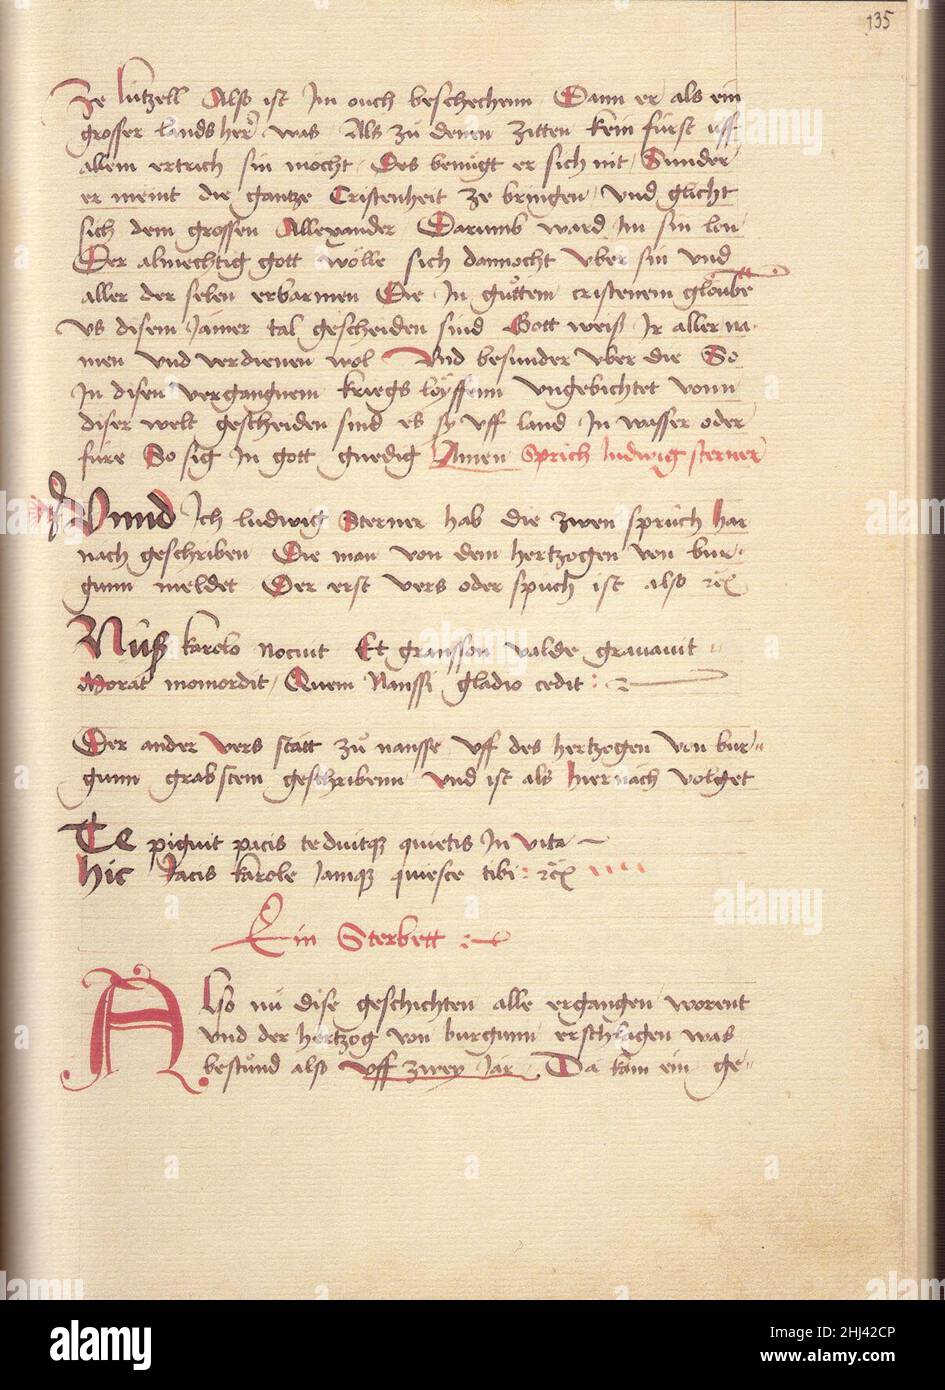 135
Ze lützell Also ist Im ouch beschechenn Dann er als ein
grosser landsherr was Als zů denen zitten kein fürst uff
allem ertrich sin mocht Des benügt er sich nit Sunder
er meint die gantze Cristenheit ze bringen und glicht
sich dem grossen Allexander Darumb ward Im sin lon
Der almechtig gott wölle sich dannocht vber sin und
aller der selen erbarmen Die In gůttem cristenem gloube
vs disem Jamer tal gescheiden sind Gott weiß Ir aller na
men und verdienen wol Und besunder vber die So
In disen vergangnem kriegs löyffenn ungebichtet vonn
diser welt gescheiden sind es sy uff land In wasser oder
füre So sig In gott gnedig Amen Sprich ludwig sterner
Unnd Ich ludwig Sterner hab die zwen sprüch har
nach geschriben Die man von dem hertzogen von bur
gunn meldet Der erst vers oder spruch ist also
Nüß karolo nocuit Et gransson valde gravauit
Morat momordit Quem Nanssi gladio cedit :
Der ander vers statt zů nansse uff des hertzogen von bur
gunn grabstein geschribenn und ist als hiernach volget
Te piguit pacis teduitqз quietis In vita
hic Jacis karole Jamqз quiesce tibi :
Ein Sterbett
Also nu dise geschichten alle ergangen worent
und der hertzog von burgunn erschlagen was
bestůnd also uff zwey Jar Da kam ein ge
alamy
Image ID: 2HJ42CP
www.alamy.com